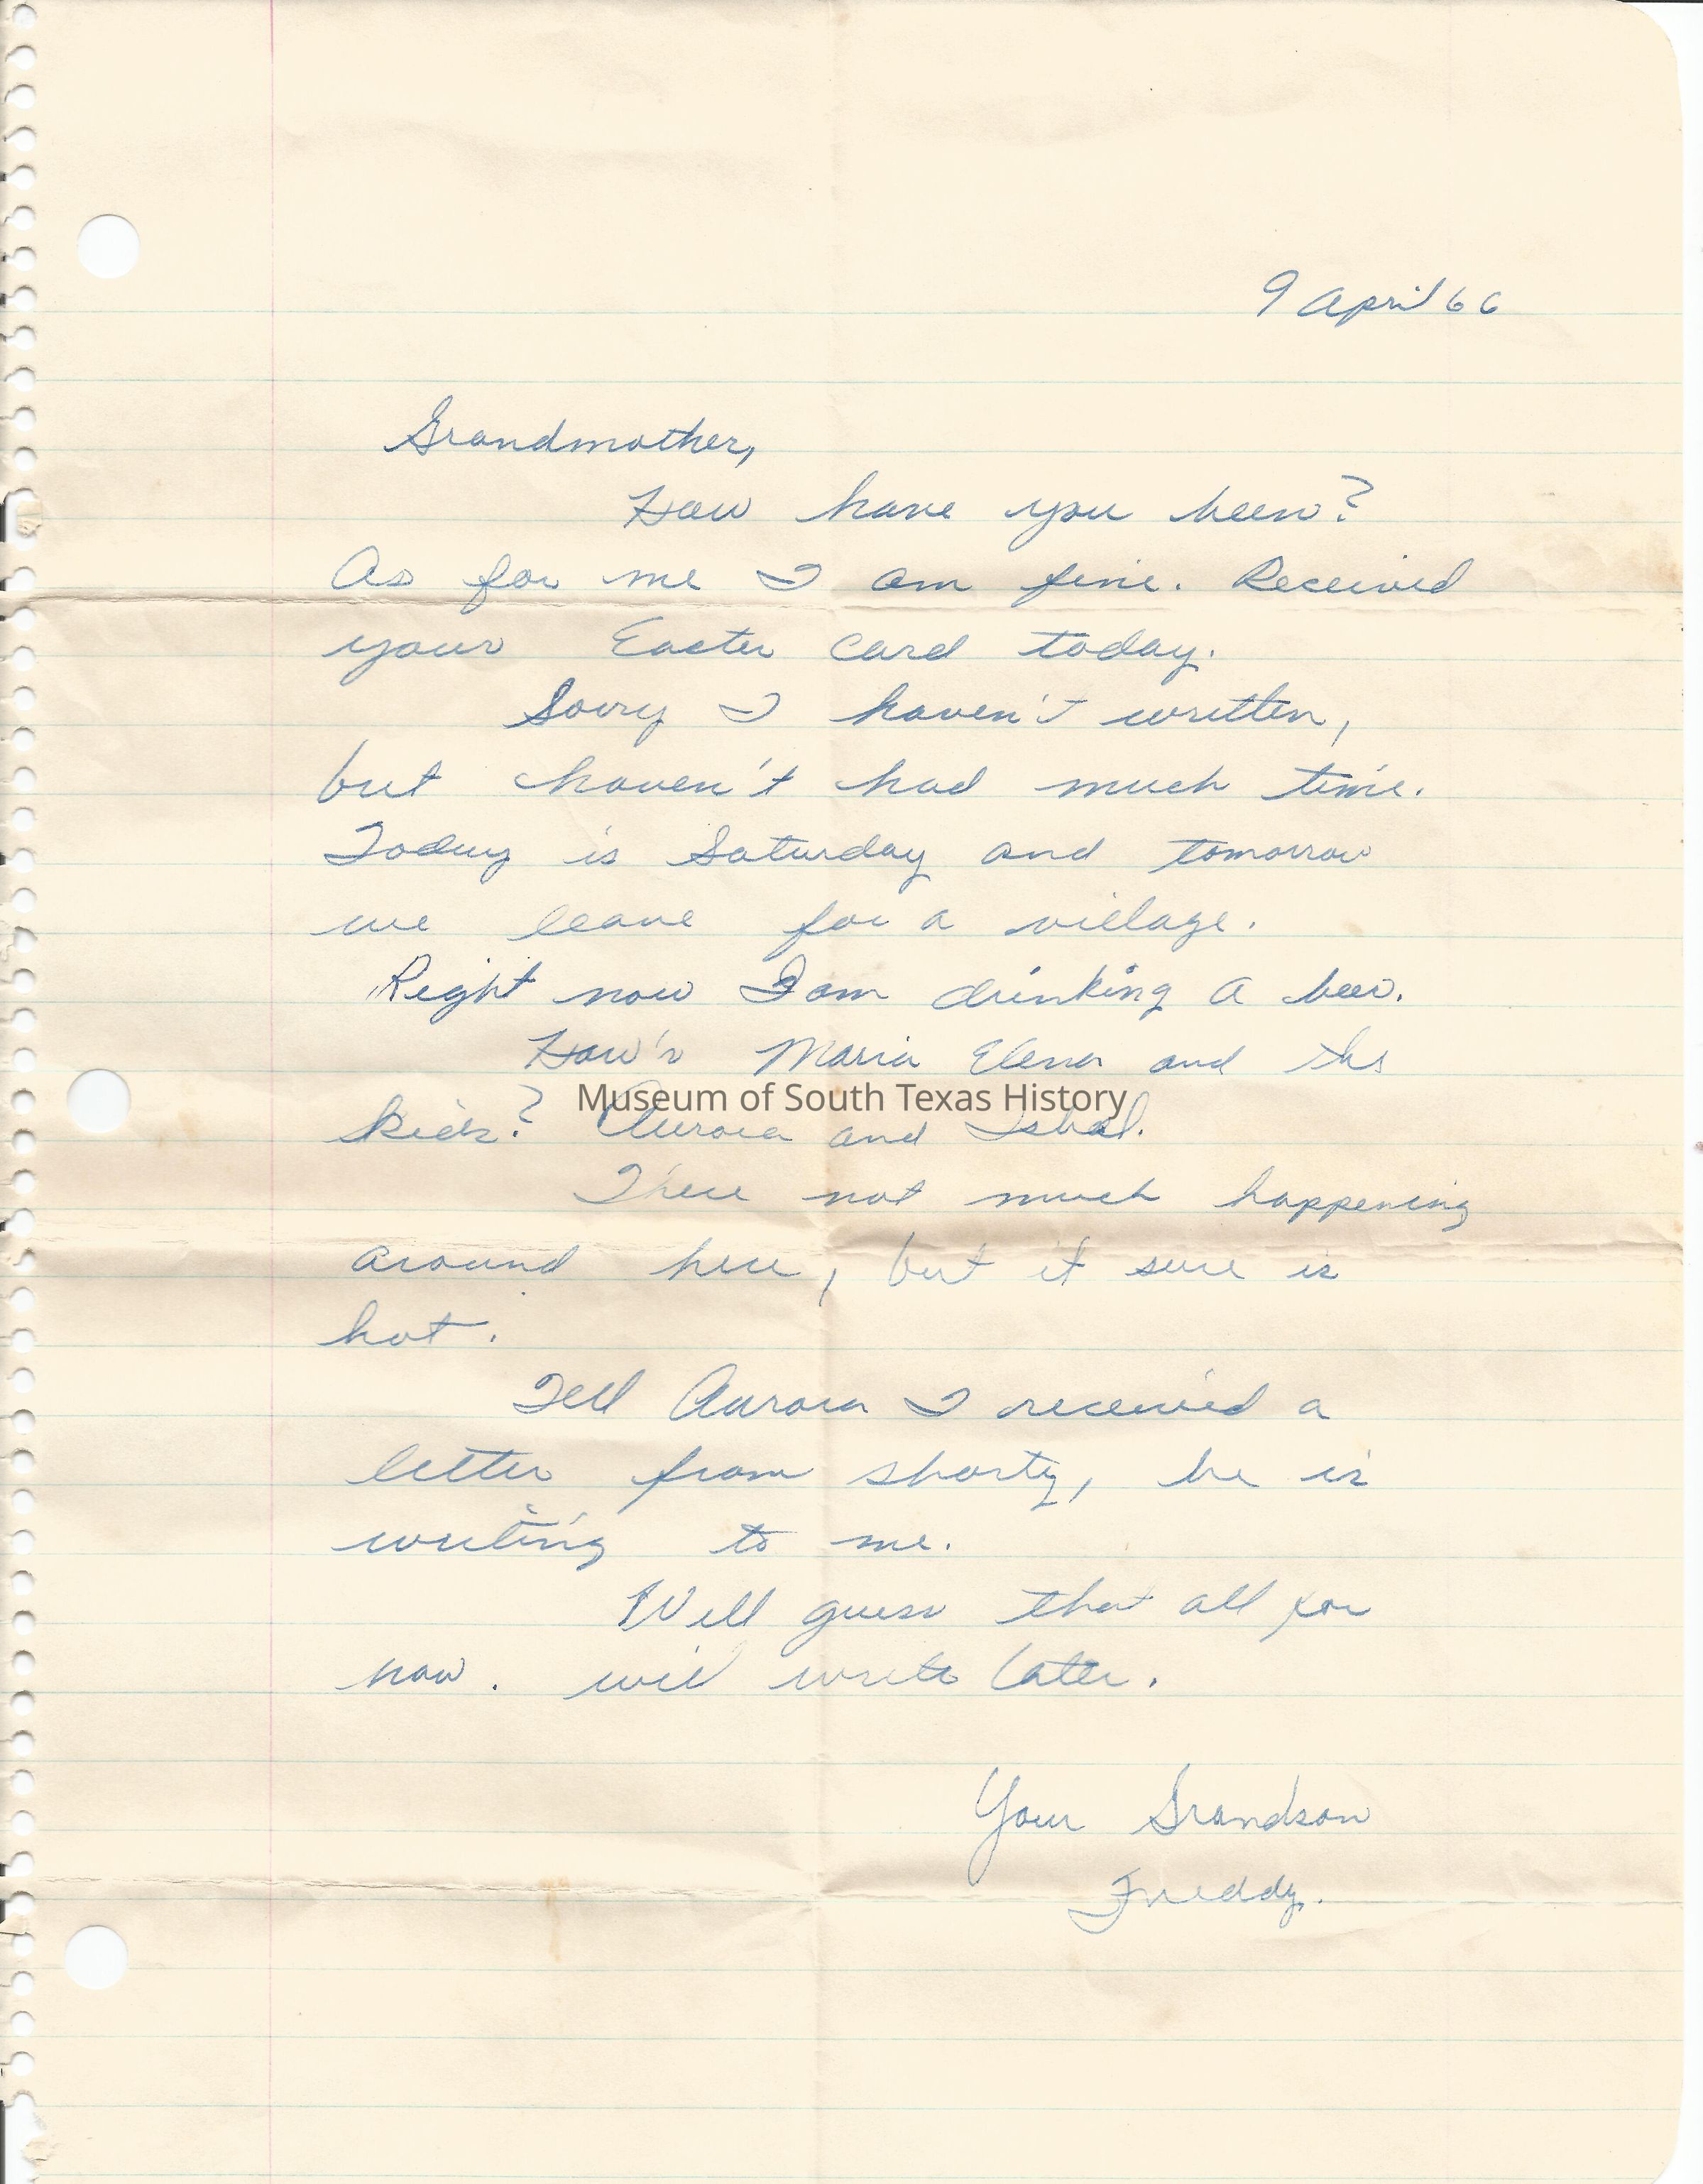 9 April 66
Grandmother,
How have you been?
As for me I am fine. Received
your Easter card today.
Sorry I haven't written,
but haven't had much time.
Today is Saturday and tomorrow
we leave for a village.
Right now I am drinking a beer.
How's Maria Elena and the
Museum of South Texas History
kids? Aurora and
There not much happening
around here, but it sure is
hot.
Tell Aurora I received a
letter from shorty, he is
writing to me.
Well guess that all for
now. will write later.
Your Grandson
Freddy.